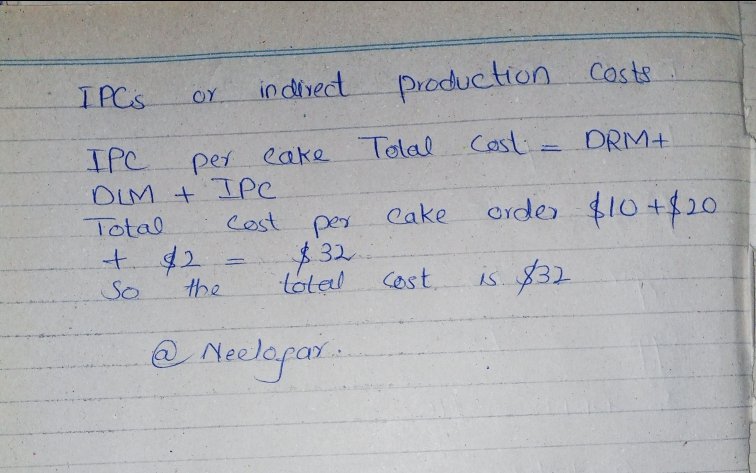 IPCs or indirect production costs.
IPC per cake Total Cost = DRM+
DLM + IPC
Total cost per cake order $10 + $20
+ $2 = $32
So the total cost is $32
@ Neelofar.